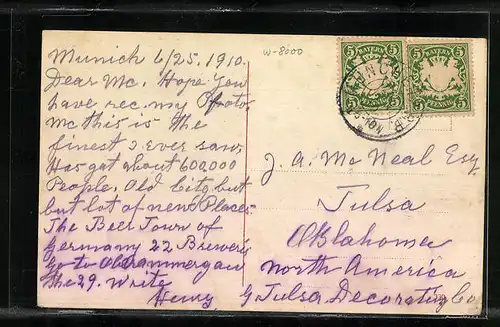 Munich 6/25, 1910.
Dear Mc. Hope You
have rec. my Photo
Mc this is the
finest I Ever saw
Has got about 600,000
People. Old City but
but lot of new Places.
The Beer Town of
Germany 22 Brewery
Go to Oberammergau
the 29. Write
Henry
W-8000
5 BAYERN 5
PFENNIG
5 BAYERN 5
PFENNIG
J. A. Mc Neal Esq.
Tulsa
Oklahoma
North America
Tulsa Decorating Co